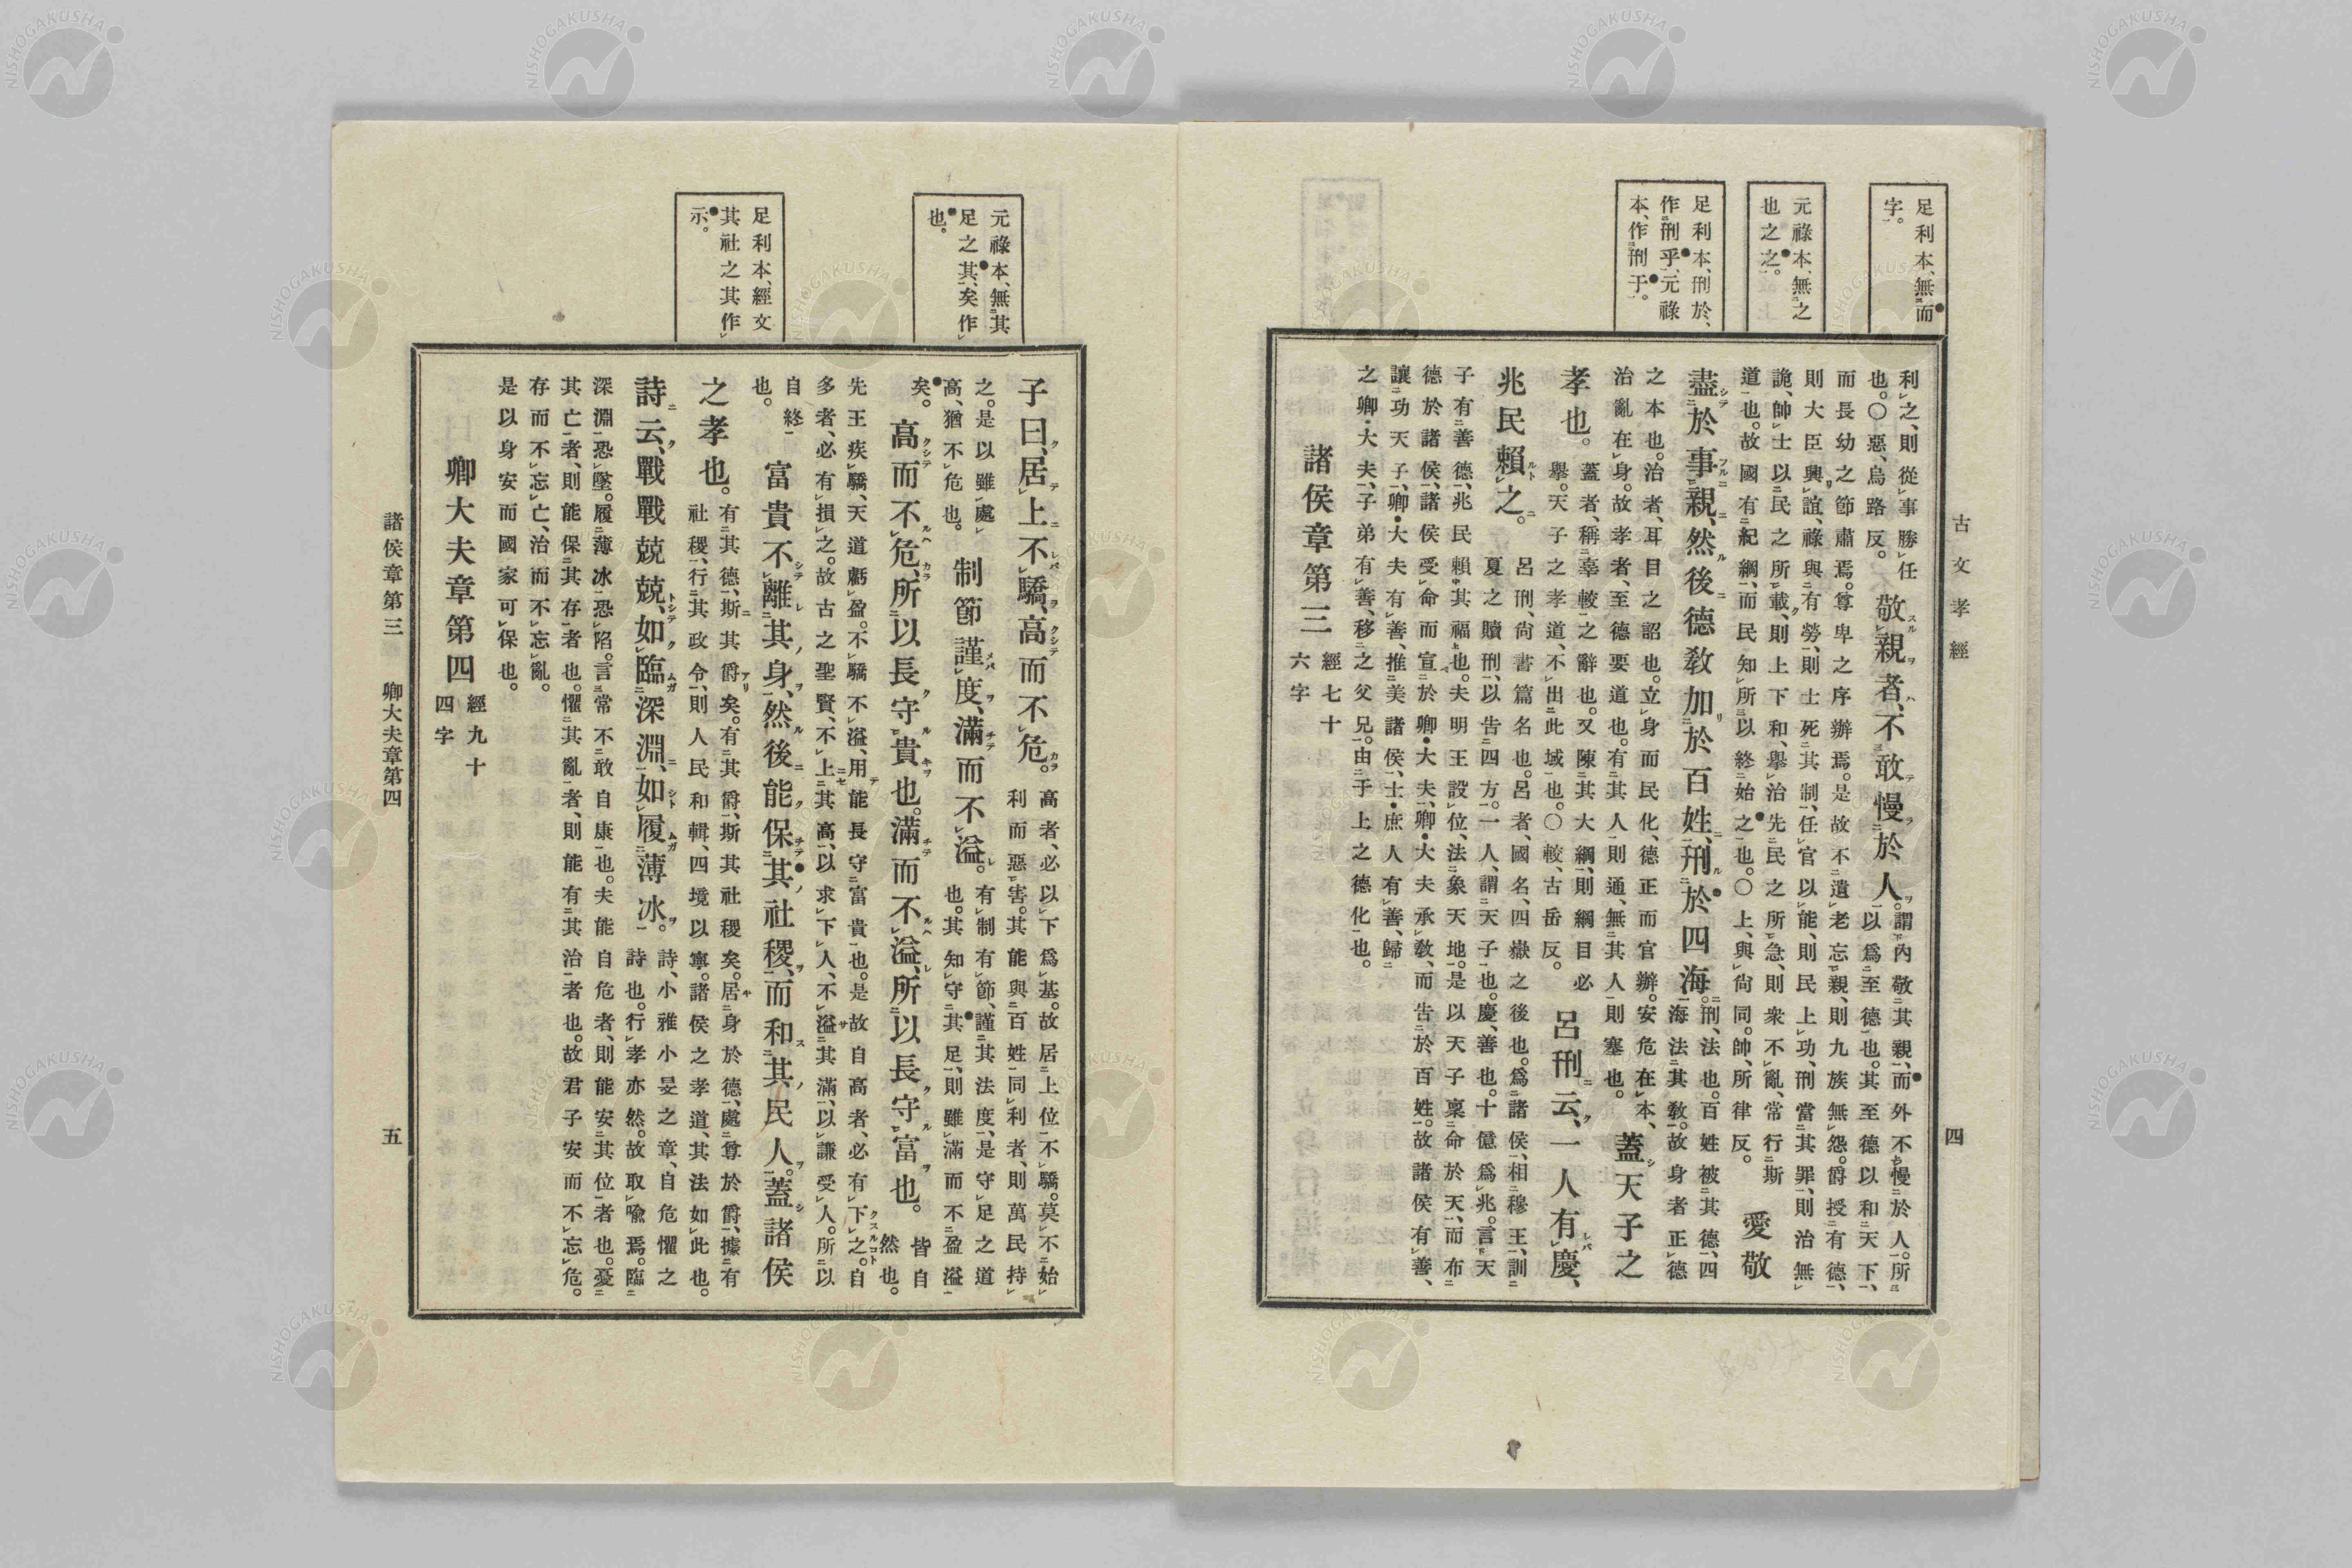 古文孝經
四
足利本、無而
字。
元祿本、無之
也之之。
足利本、刑於、
作刑乎、元祿
本、作刑于。
利之、則從事勝任
也。〇惡、烏路反。
敬親者、不敢慢於人。
謂內敬其親、而外不慢於人。所
以爲至德也。其至德以和天下、
而長幼之節肅焉。尊卑之序辦焉。是故不遺老忘親、則九族無怨。爵授有德、
則大臣興誼、祿與有勞、則士死其制、任官以能、則民上功、刑當其罪、則治無
詭、帥士以民之所載、則上下和、擧治先民之所急、則衆不亂、常行斯
道也。故國有紀綱、而民知所以終始之也。〇上、與尙同。帥、所律反。
愛敬
盡於事親、然後德敎加於百姓、刑於四海。
刑、法也。百姓被其德、四
海法其敎。故身者正德
之本也。治者、耳目之詔也。立身而民化、德正而官辦。安危在本、
治亂在身。故孝者、至德要道也。有其人則通、無其人則塞也。
蓋天子之
孝也。
蓋者、稱辜較之辭也。又陳其大綱、則綱目必
擧。天子之孝道、不出此域也。〇較、古岳反。
呂刑云、一人有慶、
兆民賴之。
呂刑、尙書篇名也。呂者、國名、四嶽之後也。爲諸侯、相穆王、訓
夏之贖刑、以告四方。一人、謂天子也。慶、善也。十億爲兆。言天
子有善德、兆民賴其福也。夫明王設位、法象天地。是以天子稟命於天、而布
德於諸侯、諸侯受命而宣於卿・大夫、卿・大夫承敎、而告於百姓。故諸侯有善、
讓功天子、卿・大夫有善、推美諸侯、士・庶人有善、歸
之卿・大夫、子弟有善、移之父兄。由于上之德化也。
諸侯章第三
經七十
六字
元祿本、無其
足之其、矣作
也。
足利本、經文
其社之其作
示。
子曰、居上不驕、高而不危。
高者、必以下爲基。故居上位不驕。莫不始
利而惡害。其能與百姓同利者、則萬民持
之。是以雖處
高、猶不危也。
制節謹度、滿而不溢。
有制有節、謹其法度、是守足之道
也。其知守其足、則雖滿而不盈溢
矣。
高而不危、所以長守貴也。滿而不溢、所以長守富也。
皆自
然也。
先王疾驕、天道虧盈。不驕不溢、用能長守富貴也。是故自高者、必有下之。自
多者、必有損之。故古之聖賢、不上其高、以求下人、不溢其滿、以謙受人。所以
自終
也。
富貴不離其身、然後能保其社稷、而和其民人。蓋諸侯
之孝也。
有其德、斯其爵矣。有其爵、斯其社稷矣。居身於德、處尊於爵、據有
社稷、行其政令、則人民和輯、四境以寧。諸侯之孝道、其法如此也。
詩云、戰戰兢兢、如臨深淵、如履薄冰。
詩、小雅小旻之章、自危懼之
詩也。行孝亦然。故取喩焉。臨
深淵恐墜。履薄冰恐陷。言常不敢自康也。夫能自危者、則能安其位者也。憂
其亡者、則能保其存者也。懼其亂者、則能有其治者也。故君子安而不忘危。
存而不忘亡、治而不忘亂。
是以身安而國家可保也。
卿大夫章第四
經九十
四字
諸侯章第三　卿大夫章第四
五
NISHOGAKUSHA